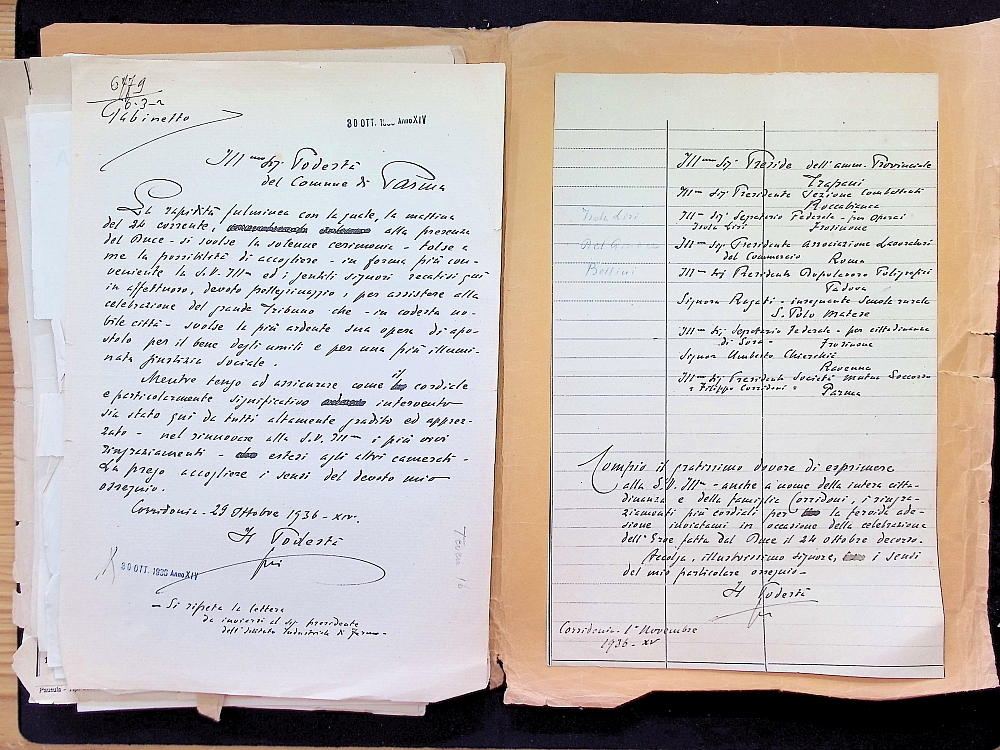 6779
6-3-2
Gabinetto
30 OTT. 1936 Anno XIV
Ill.mo Sig. Podestà
del Comune di Parma
La rapidità fulminea con la quale, la mattina
del 24 corrente, alla presenza
del Duce - si svolse la solenne cerimonia - tolse a
me la possibilità di accogliere - in forma più con-
veniente la S.V. Ill.ma ed i gentili signori recatisi qui
in affettuoso, devoto pellegrinaggio, per assistere alla
celebrazione del grande Tribuno che - in codesta no-
bile città - svolse la più ardente sua opera di apo-
stolo per il bene degli umili e per una più illumi-
nata giustizia sociale.
Mentre tengo ad assicurare come il cordiale
e particolarmente significativo intervento
sia stato qui da tutti altamente gradito ed apprez-
zato - nel rinnovare alla S.V. Ill.ma i più vivi
ringraziamenti - estesi agli altri camerati -
La prego accogliere i sensi del devoto mio
ossequio.
Corridonia - 29 Ottobre 1936 - XIV.
Il Podestà
30 OTT. 1936 Anno XIV
- Si ripeta la lettera
da inviarsi al sig. presidente
dell'Istituto Industriale di Fermo -
Ill.mo Sig. Preside dell'amm. Provinciale
Trapani
Ill.mo Sig. Presidente Sezione Combattenti
Roccabianca
Isola Liri
Ill.mo Sig. Segretario Federale - per Operai
Isola Liri Frosinone
Ill.mo Sig. Presidente Associazione Lavoratori
del Commercio Roma
Bellini
Ill.mo Sig. Presidente Dopolavoro Poligrafici
Padova
Signora Rogati - insegnante Scuola rurale
S. Polo Matese
Ill.mo Sig. Segretario Federale - per cittadinanza
di Sora - Frosinone
Signor Umberto Chierchiè
Ravenna
Ill.mo Sig. Presidente Società Mutuo Soccorso
"Filippo Corridoni" - Parma
Compio il gratissimo dovere di esprimere
alla S.V. Ill.ma - anche a nome della intera citta-
dinanza e della famiglia Corridoni, i ringra-
ziamenti più cordiali per la fervida ade-
sione inviatami in occasione della celebrazione
dell'Eroe fatta dal Duce il 24 ottobre decorso.
Accolga, illustrissimo signore, i sensi
del mio particolare ossequio -
Il Podestà
Corridonia - 1° Novembre
1936 - XV